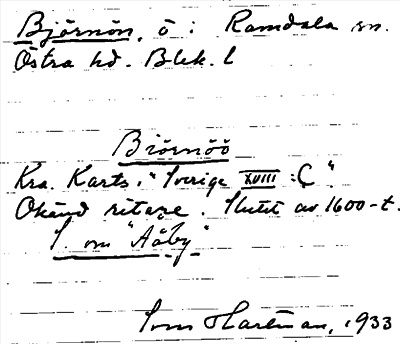 Björnön, ö i Ramdala sn.
Östra hd. Blek. l
Biörnöö
Kra. Karts. "Sverige XVIII :C".
Okänd ritare. Slutet av 1600-t.
S. om "Aäby"
Sven Hartman, 1933